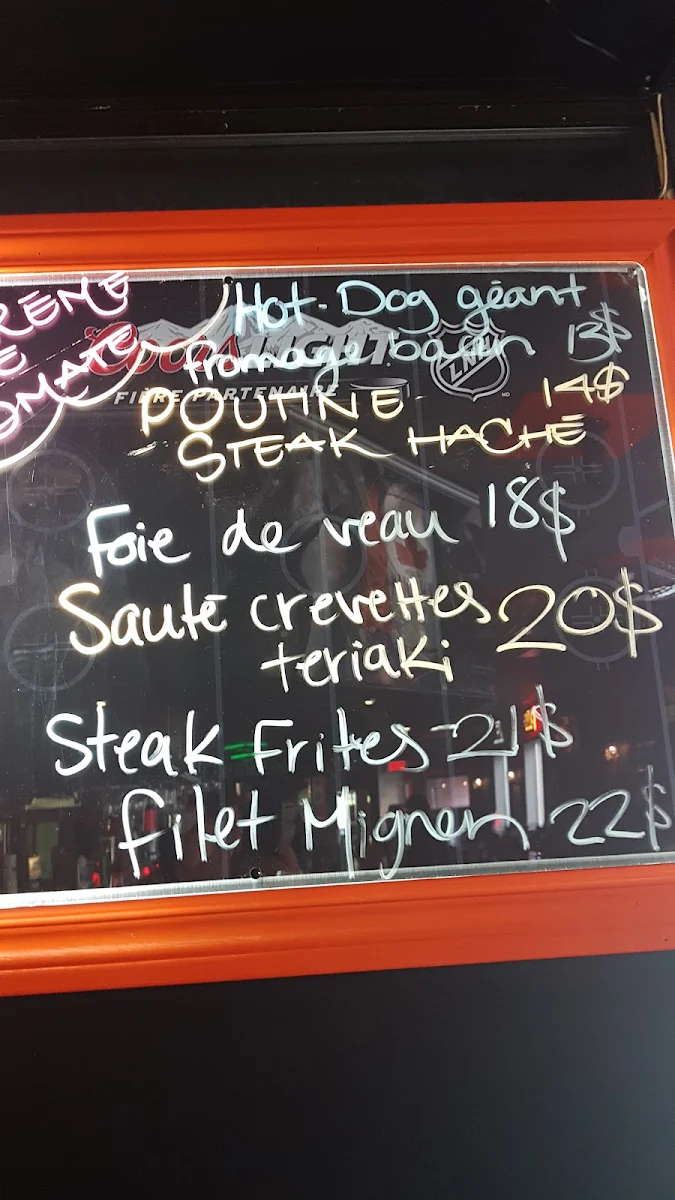 RÈME
E
OMATE
Hot-Dog géant
fromage bacon 13$
POUTINE 14$
STEAK HACHÉ
Foie de veau 18$
Sauté crevettes 20$
teriaki
Steak Frites 21$
Filet Mignon 22$
Coors LIGHT
FIÈRE PARTENAIRE
LNH